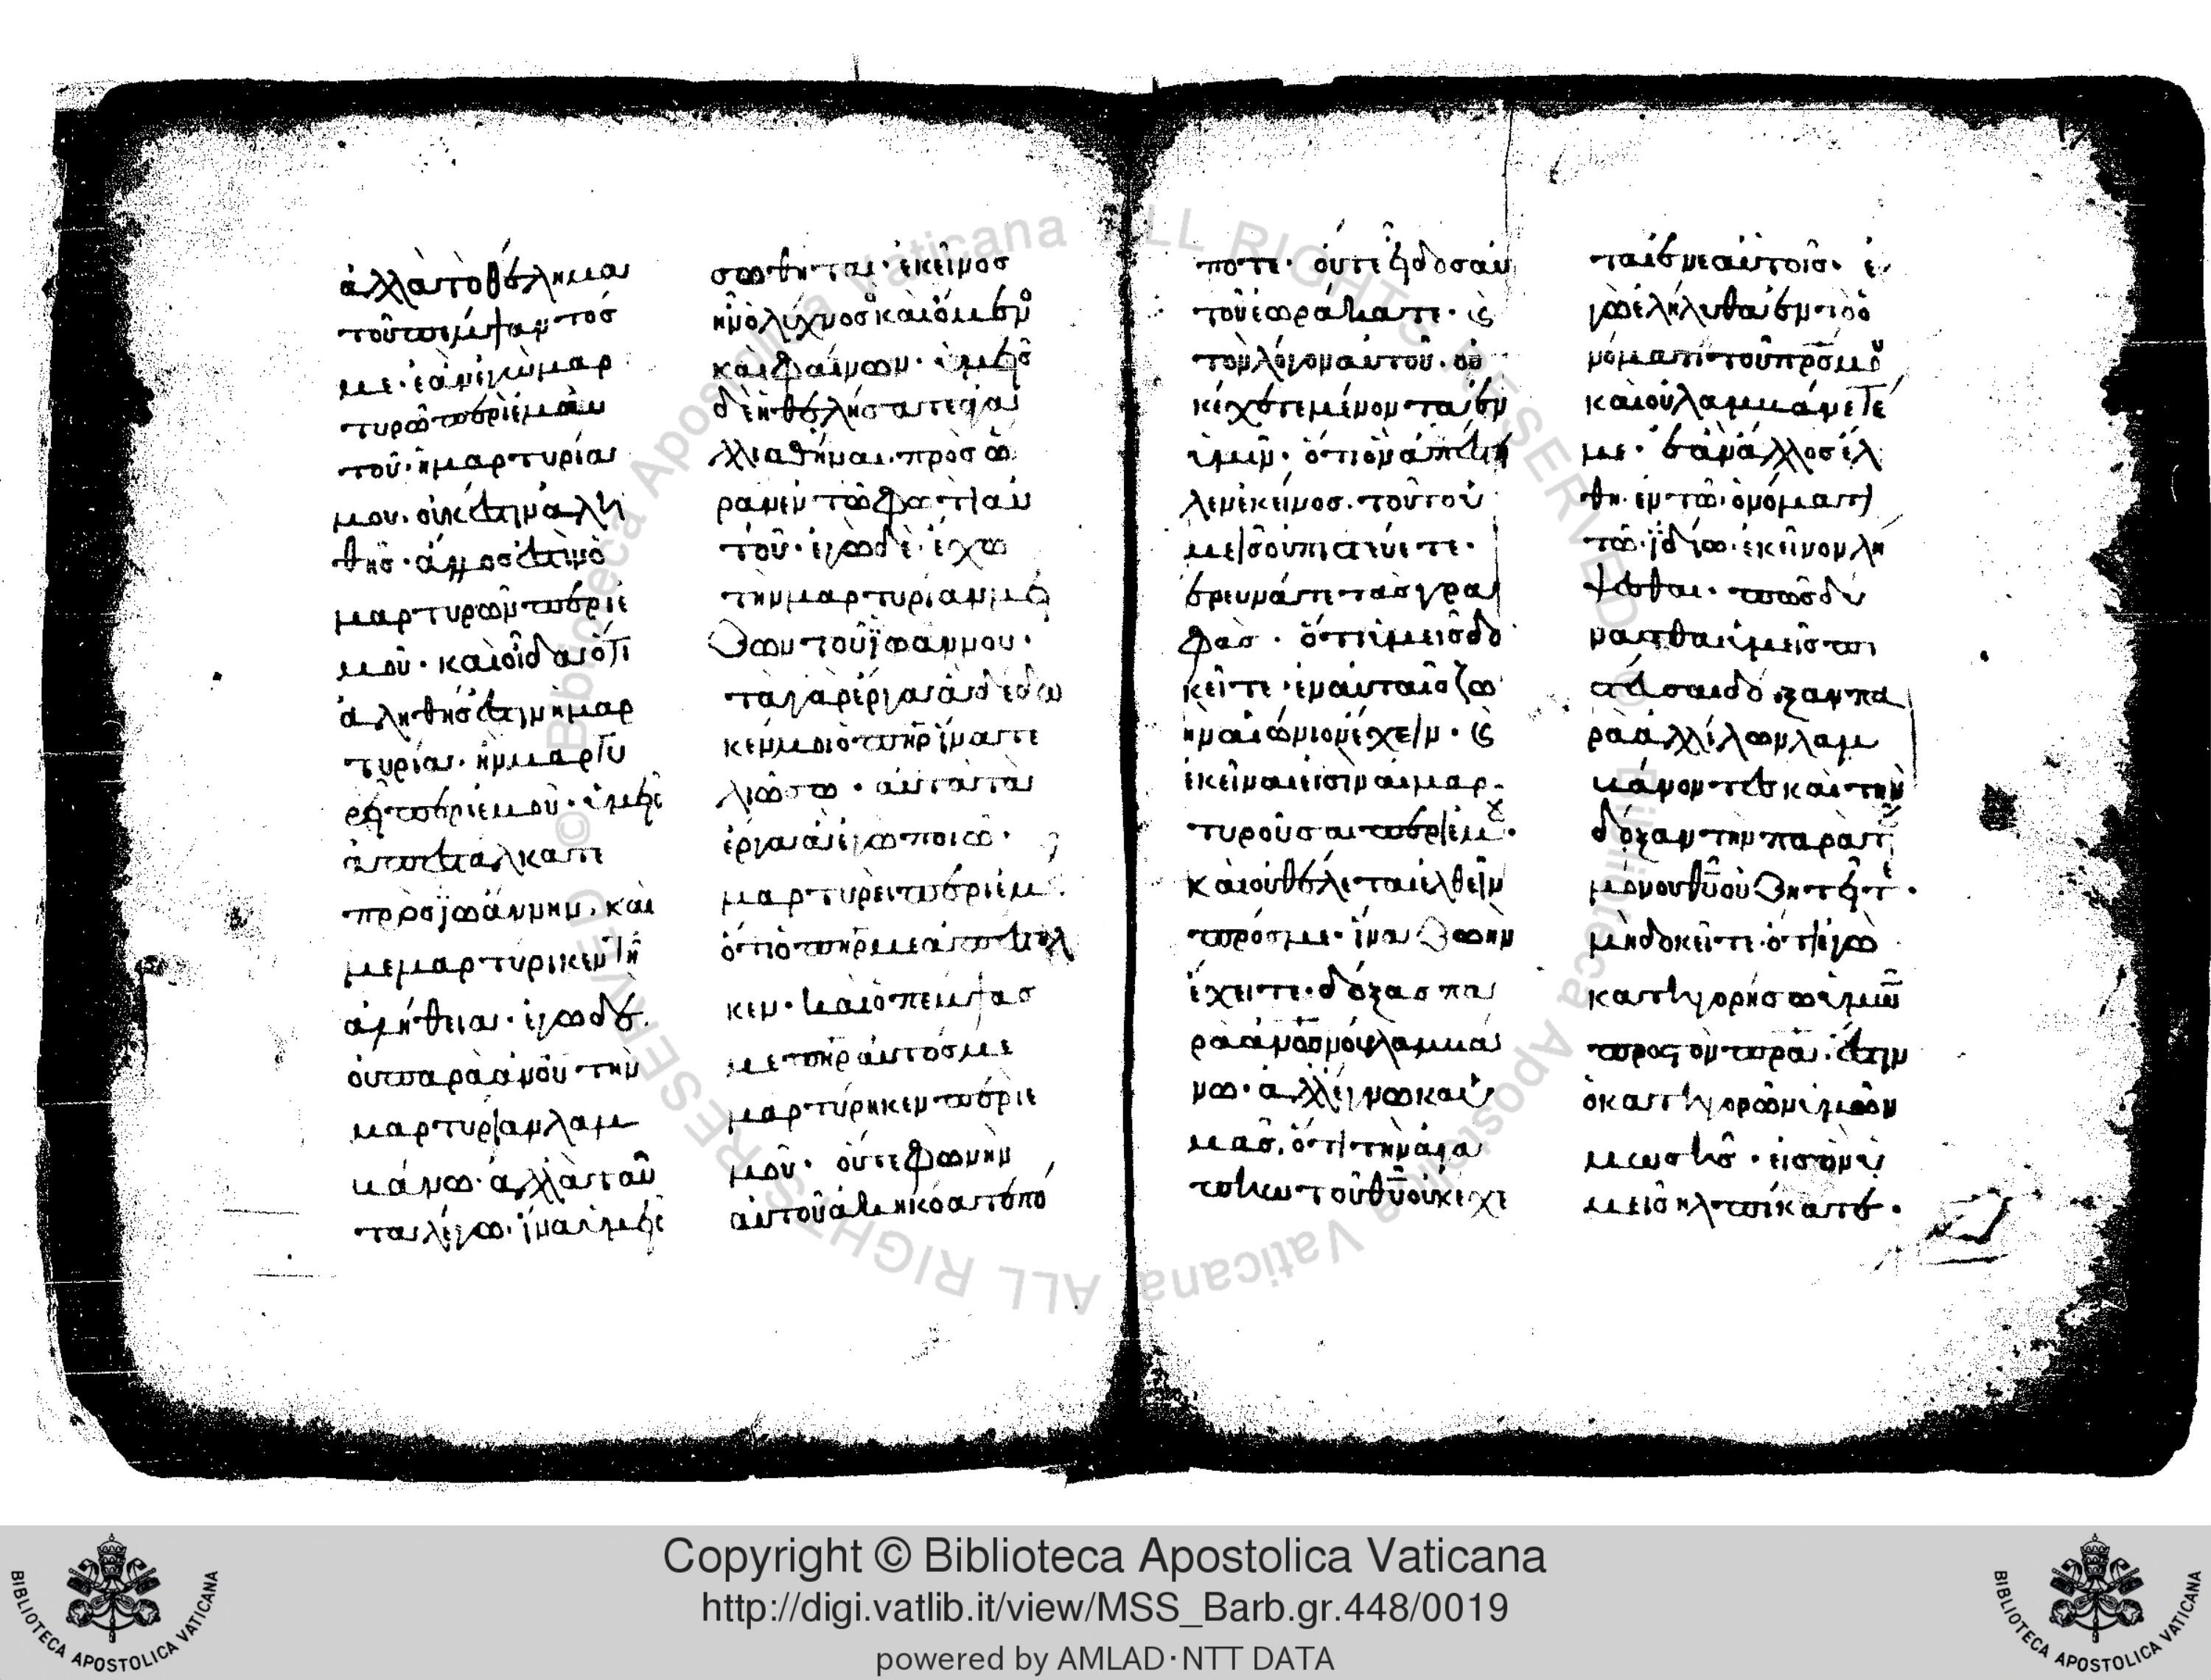 ἀλλὰ τὸ θέλημα
τοῦ πέμψαντός
με· ἐὰν ἐγὼ μαρ
τυρῶ περὶ ἐμαυ
τοῦ· ἡ μαρτυρία
μου· οὐκ ἔστιν ἀλη
θής· ἄλλος ἐστὶν ὁ
μαρτυρῶν περὶ ἐ
μοῦ· καὶ οἶδα ὅτι
ἀληθής ἐστιν ἡ μαρ
τυρία· ἣν μαρτυ
ρεῖ περὶ ἐμοῦ· ὑμεῖς
ἀπεστάλκατε
πρὸς ἰωάννην· καὶ
μεμαρτύρικεν τῇ
ἀληθεία· ἐγὼ δὲ
οὐ παρὰ ἀνου τὴν
μαρτυρίαν λαμ
βάνω· ἀλλὰ ταῦ
τα λέγω· ἵνα ὑμεῖς
σωθῆται· ἐκεῖνος
ἦν ὁ λύχνος ὁ καιόμενος
καὶ φαίνων· ὑμεῖς
δὲ ἠθελήσατε ἀγα
λλιαθῆναι· πρὸς ὥ
ραν ἐν τῶ φωτὶ αυ
τοῦ· ἐγὼ δὲ ἔχω
τὴν μαρτυρίαν μεί
ζων τοῦ ϊωάννου·
τὰ γὰρ ἔργα ἃ δέδω
κέν μοι ὁ πηρ ἵνα τε
λιώσω· αὐτὰ τὰ
ἔργα ἃ ἐγὼ ποιῶ·
μαρτυρεῖ περὶ ἐμοῦ
ὅτι ὁ πηρ με ἀπέσταλ
κεν· καὶ ὁ πέμψας
με πηρ αὐτός με
μαρτύρηκεν περὶ ἐ
μοῦ· οὔτε φωνὴν
αὐτοῦ ἀκηκόατε πώ
ποτε· οὔτε εἶδος αὐ
τοῦ ἑωράκατε· καὶ
τὸν λόγον αὐτοῦ· οὐ
κ ἔχετε μένονται ἐν
ὑμῖν· ὅτι ὃν ἀπέστει
λεν ἐκεῖνος· τοῦτο ὑ
μεῖς οὐ πιστεύετε·
ἐρευνάτε τὰς γρα
φάς· ὅτι ὑμεῖς δο
κεῖτε· ἐν αὐταῖς ζω
ὴν αἰώνιον ἔχειν· καὶ
ἐκεῖναι εἰσὶν αἱ μαρ
τυροῦσαι περὶ ἐμοῦ·
καὶ οὐ θέλεται ἐλθεῖν
πρός με· ἵνα ζωὴν
ἔχητε· δόξας πα
ρὰ ἀνου οὐ λαμβά
νω· ἀλλ' ἔγνωκα ὑ
μᾶς, ὅτι τὴν ἀγά
πην τοῦ θυ οὐκ ἔχε
ται ἐν ἑαυτοῖς· ἐ
γὼ ἐλήλυθα ἐν τῶ ὀ
νόματι τοῦ πρς μου
καὶ οὐ λαμβάνετέ
με· ἐὰν ἄλλος ἔλ
θη· ἐν τῶ ὀνόματι
τῶ ϊδίω· ἐκεῖνον λή
ψεσθαι· πῶς δύ
νασθαι ὑμεῖς πι
στεῦσαι δόξαν πα
ρὰ ἀλλήλων λαμ
βάνοντες καὶ τὴν
δόξαν τὴν παρὰ τοῦ
μόνου θυ οὐ ζητεῖτε·
μὴ δοκεῖτε ὅτι ἐγὼ
κατηγορήσω ὑμῶν
πρὸς τὸν πρα· ἔστιν
ὁ κατηγορῶν ὑμῶν
μωσῆς· εἰς ὃν ὑ
μεῖς ἠλπίκατε·
Copyright © Biblioteca Apostolica Vaticana
http://digi.vatlib.it/view/MSS_Barb.gr.448/0019
powered by AMLAD·NTT DATA
BIBLIOTECA APOSTOLICA VATICANA
BIBLIOTECA APOSTOLICA VATICANA